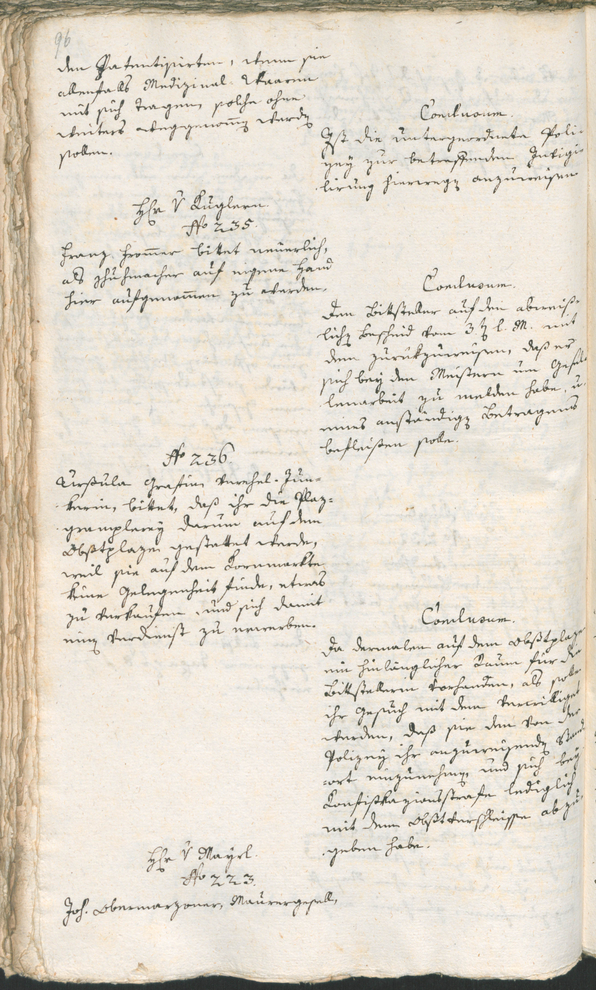 96
den Patentisirten, wenn sie
allenfalls Medizinal-Waaren
mit sich tragen, solche ohne
weiters weggenommen werden
sollen.
Conclusum.
Ist die untergeordnete Poli-
zey zur betreffenden Invigi-
lirung hierwegen anzuweisen
Hr v Kuglern
No 235.
Franz Frommer bittet neuerlich,
als Schuhmacher auf eigene Hand
hier aufgenommen zu werden.
Conclusum.
Dem Bittsteller auf den abweis-
lichen Bescheid vom 3ten l. M. mit
dem zurückzuweisen, daß er
sich bey den Meistern um Gesel-
lenarbeit zu melden habe, u.
eines anständigen Betragens
befleißen solle.
No 236
Ursula Grassin verehel. Jun-
kerin, bittet, daß ihr die
darum auf dem
Obstplaze gestattet werde,
weil sie auf dem Kornmarkte
keine Gelegenheit finde, etwas
zu verkaufen, und sich damit
einen Verdienst zu erwerben.
Conclusum.
Da dermalen auf dem Obstplaze
ein hinlänglicher Raum für die
Bittstellerin vorhanden, als solle
ihr Gesuch mit dem verwilliget
werden, daß sie den von der
Polizey ihr anzuweisenden Stand-
ort einzunehmen, und sich bey
Konfiskazionsstrafe lediglich
mit dem Obstverschleisse abzu-
geben habe.
Hr v Mayrl.
No 223.
Joh. Obermarzoner, Maurergesell,